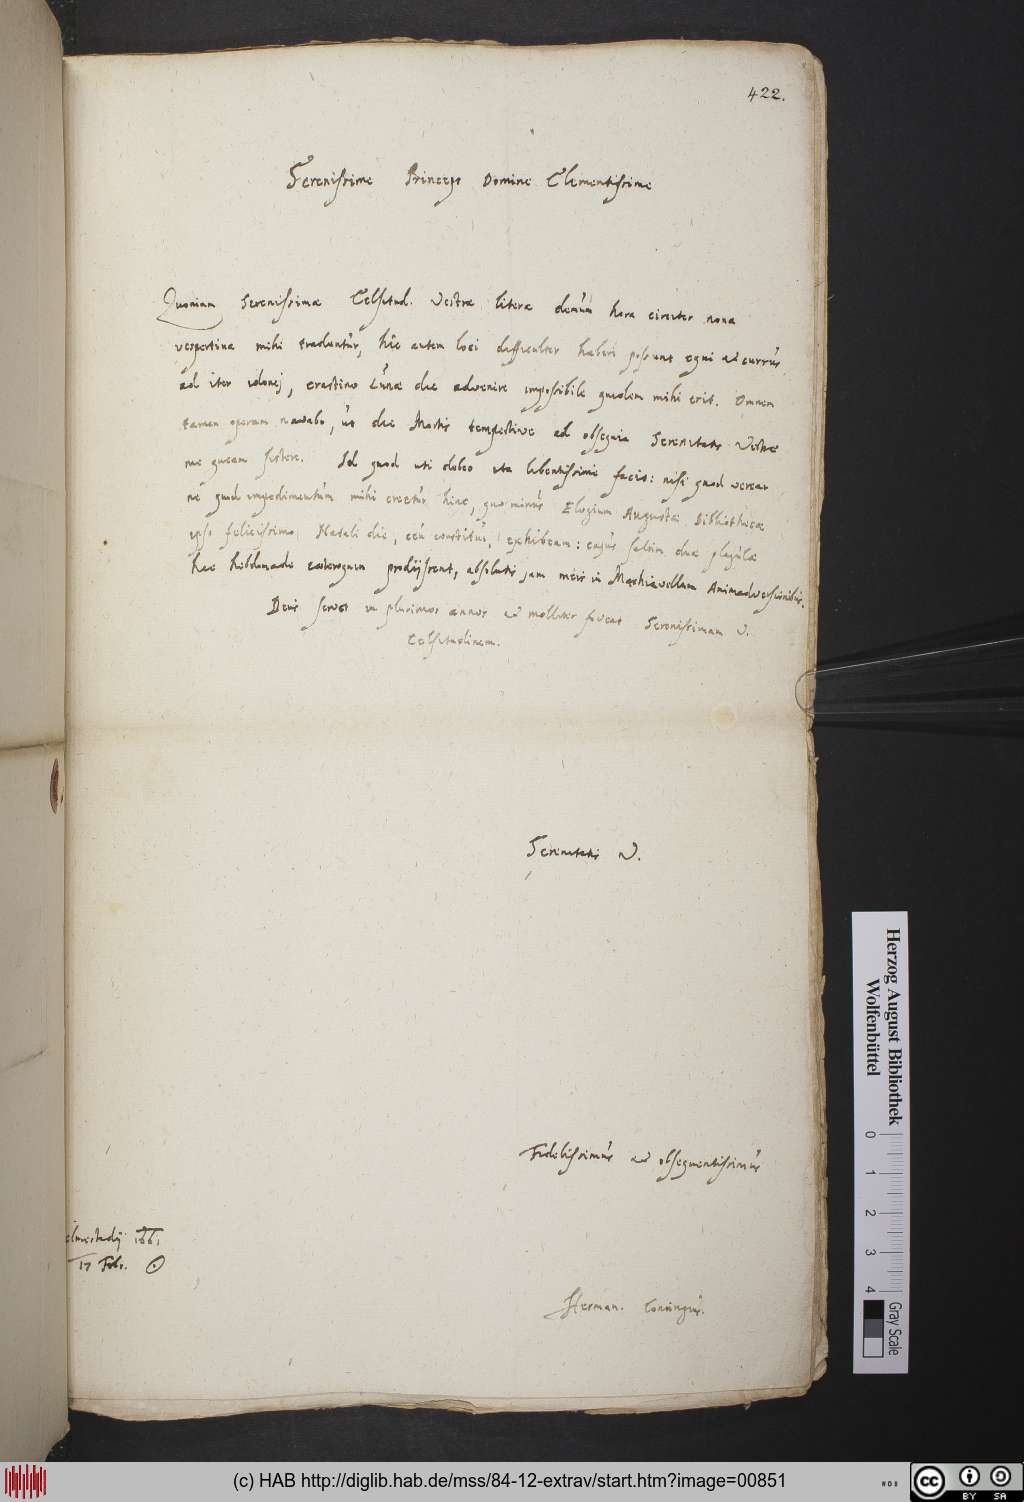 422.
Serenissime Princeps Domine Clementissime
Quoniam Serenissimæ Celsitud. Vestræ literæ demùm hora circiter nona
vespertina mihi tradantùr, hîc autem loci difficulter haberi possunt equi et currùs
ad iter idonej, crastino Lùnæ die advenire impossibile quidem mihi erit. Omnem
tamen operam navabo, ùt die Martis tempestive ad obsequia Serenitatis Vestræ
me queam sistere. Id quod uti debeo ita libentissime facio: nisi quod verear
ne quid impedimentùm mihi creetùr hinc, quo minùs Elogium Augustæ Bibliothecæ
ipso felicissimo Natali die, ceù constitùi, exhibeam: cujùs saltim duæ plagùlæ
hac hebdomade excierognem prodijssent, absolutis jam meis in Machiavellum Animadversionibùs.
Deùs servet in plurimos annos et molliter foveat Serenissimam V.
Celsitudinem.
Serenitatis V.
Fidelissimùs et obsequentissimùs
elmestadij 1661
17 Feb. ☉
Herman. Conringiùs.
Herzog August Bibliothek
Wolfenbüttel
0 1 2 3 4
Gray Scale
(c) HAB http://diglib.hab.de/mss/84-12-extrav/start.htm?image=00851
WDB
cc BY SA